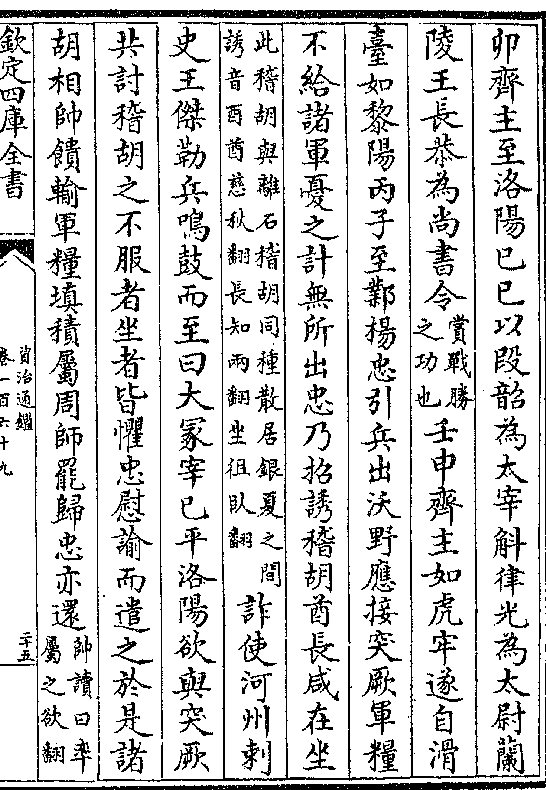 卯齊主至洛陽已巳以段韶為太宰斛律光為太尉蘭
陵王長恭為尚書令賞戰勝之功也壬申齊主如虎牢遂自滑
臺如黎陽丙子至鄴楊忠引兵出沃野應接突厥軍糧
不給諸軍憂之計無所出忠乃招誘稽胡酋長咸在坐
此稽胡與離石稽胡同種散居銀夏之間誘音酉酋慈秋翻長知兩翻坐徂臥翻詐使河州刺
史王傑勒兵鳴鼓而至曰大冢宰已平洛陽欲與突厥
共討稽胡之不服者坐者皆懼忠慰諭而遣之於是諸
胡相帥饋輸軍糧填積屬周師罷歸忠亦還帥讀曰率屬之欲翻
欽定四庫全書
資治通鑑
卷一百六十九
二十五